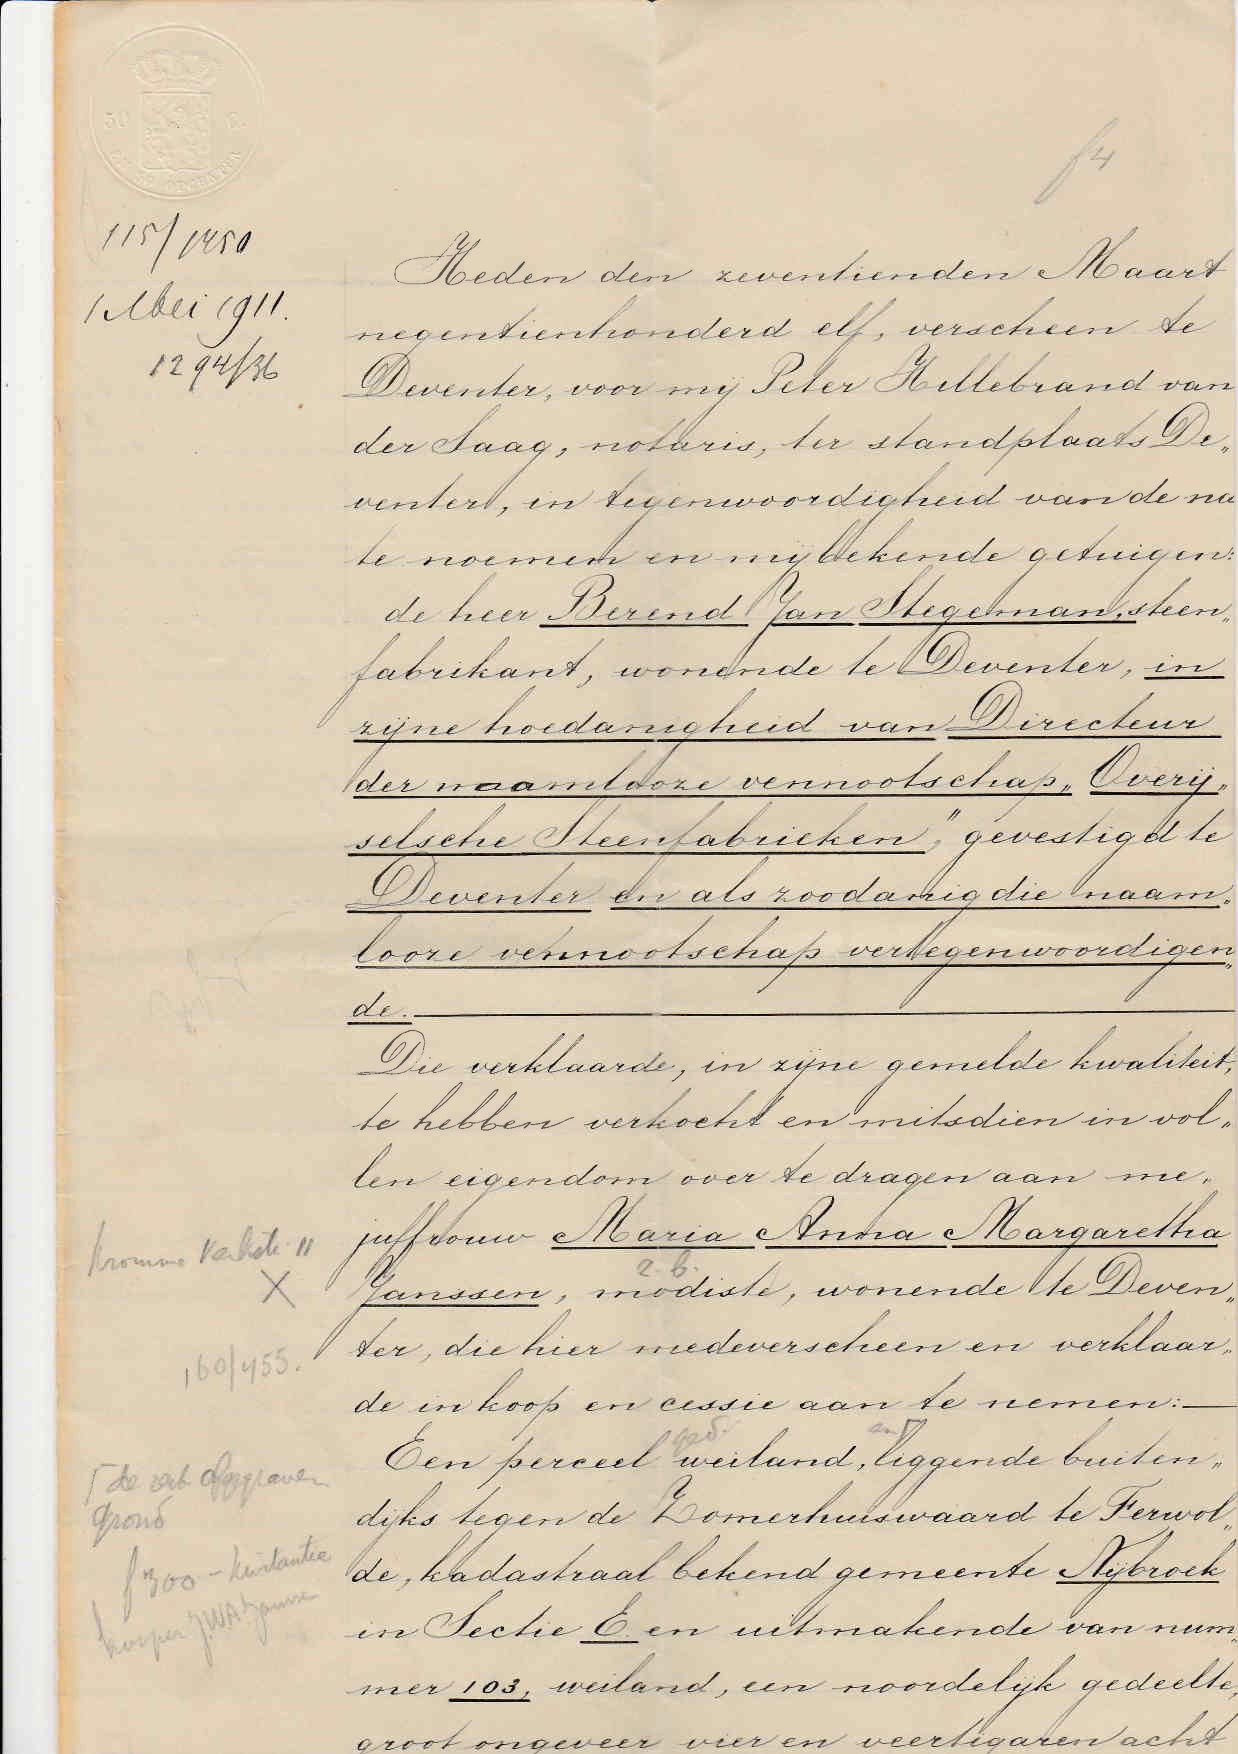 50 C.
f 4
115/1450
1 Mei 1911.
1294/36
Heden den zeventienden Maart
negentienhonderd elf, verscheen te
Deventer, voor mij Peter Hillebrand van
der Saag, notaris, ter standplaats De„
venter, in tegenwoordigheid van de na
te noemen en mij bekende getuigen:
de heer Berend Jan Stegeman, steen„
fabrikant, wonende te Deventer, in
zijne hoedanigheid van Directeur
der naamlooze vennootschap „Overij„
selsche Steenfabrieken”, gevestigd te
Deventer en als zoodanig die naam„
looze vennootschap vertegenwoordigen„
de.
Die verklaarde, in zijne gemelde kwaliteit,
te hebben verkocht en mitsdien in vol„
len eigendom over te dragen aan me„
juffrouw Maria Anna Margaretha
z. b.
Janssen, modiste, wonende te Deven„
ter, die hier medeverscheen en verklaar„
de in koop en cessie aan te nemen:
Een perceel weiland, liggende buiten„
dijks tegen de Zomerhuiswaard te Terwol„
de, kadastraal bekend gemeente Nijbroek
in Sectie E. en uitmakende van num„
mer 103, weiland, een noordelijk gedeelte,
groot ongeveer vier en veertig aren acht
X
160/455.
grond
f 300 - kwitantie